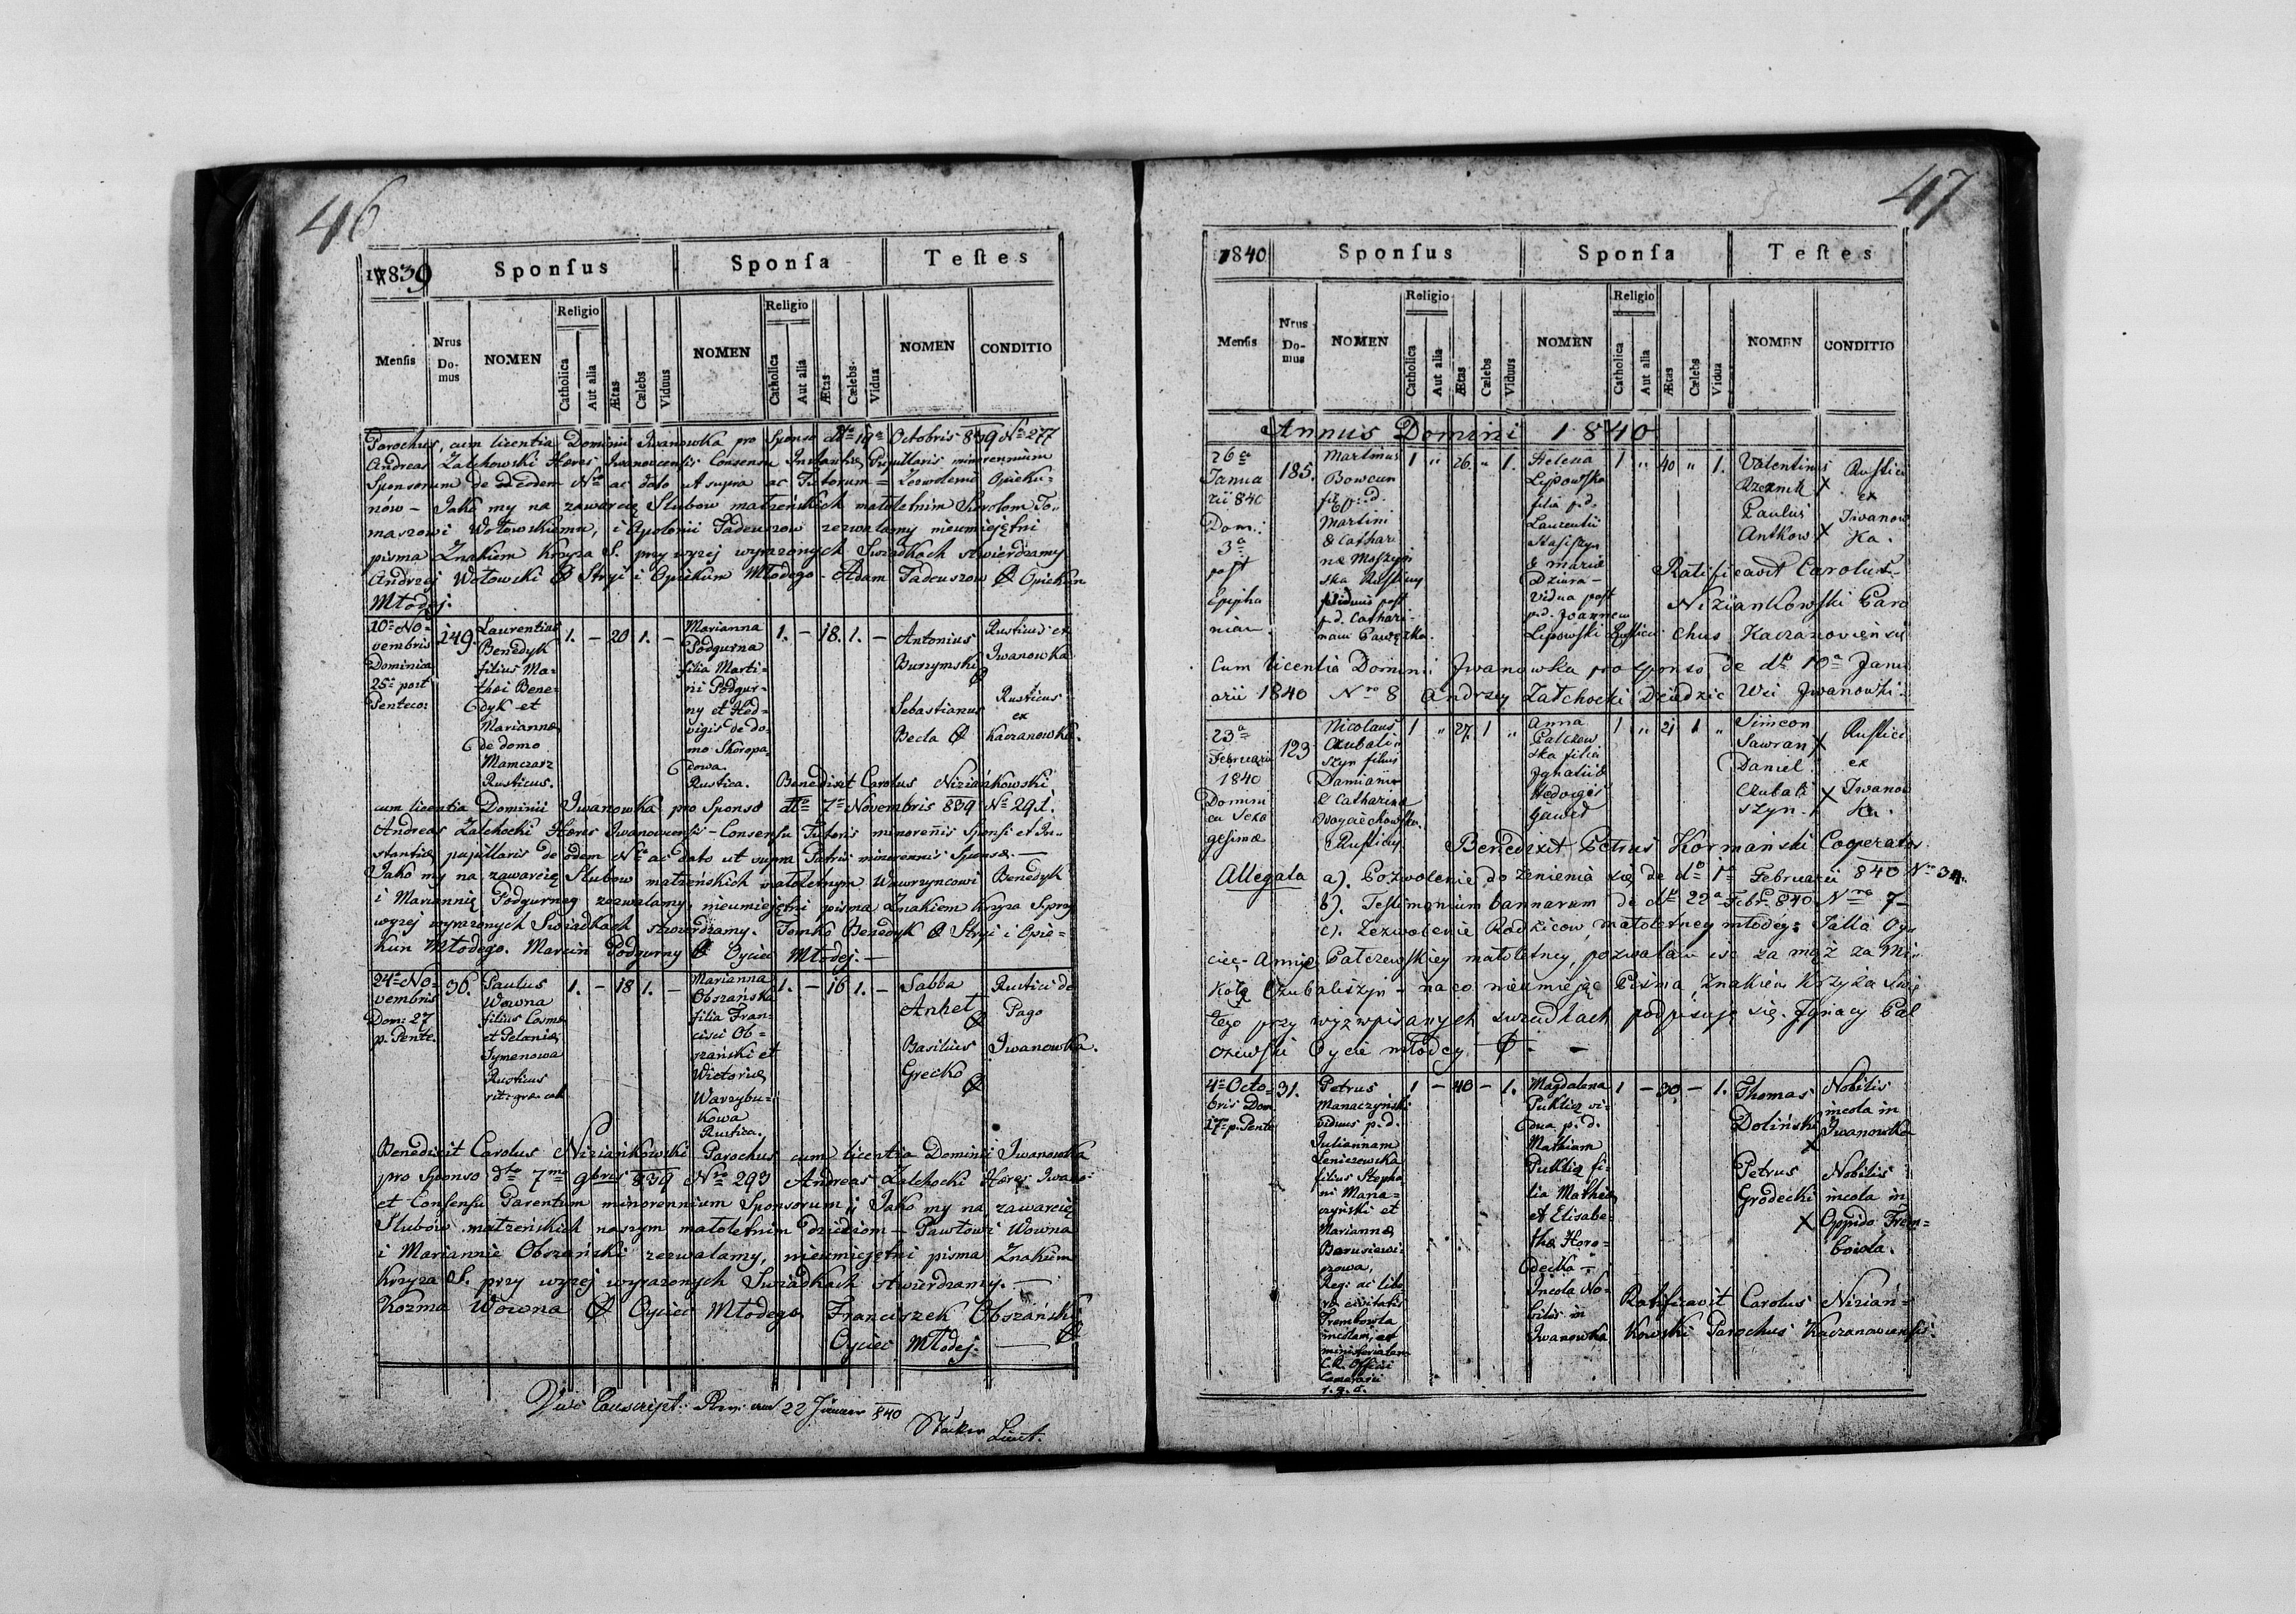 46
1839
Sponſus
Sponſa
Teſtes
Menſis
Nrus Domus
NOMEN
Religio
Catholica
Aut alia
Ætas
Cælebs
Viduus
NOMEN
Religio
Catholica
Aut alia
Ætas
Cælebs
Vidua
NOMEN
CONDITIO
Parochus, cum licentia Dominii Iwanowka pro Sponso dto 19a Octobris 839 Nro 277
Andreas Załchowski Hæres Iwanovcensis Consensu Instantiæ Pupillaris minorennium
Sponsorum de eodem Nro ac dato ut supra ac Tutorum = Zezwolenie Opieku-
nów - Jako my na zawarcię Slubow matzeńskich małoletnim Karolom To-
maszowi Wołowskiemu, i Apolonii Tadeuszow zezwalamy nieumiejętni
pisma Znakiem Krzyża S. przy wyzej wyrazonych Swiadkach stwierdzamy
Andrzej Wołowski Stryi i Opiekun Młodego - Adam Tadeuszow Opiekun
Młodej.
10a No-
vembris
Dominica
25a post
Penteco:
149.
Laurentius
Benedyk
filius Ma-
thei Bene-
dyk et
Mariannæ
de domo
Mamczarz
Rusticus.
1. - 20 1. -
Marianna
Podgurna
filia Marti-
ni Podgur-
ny et Hed-
vigis de do-
mo Skoropa-
dowa.
Rustica.
1. - 18. 1. -
Antonius
Burzymski
Sebastianus
Becla
Rusticus ex
Iwanowka
Rusticus
ex
Kaczanowka.
Benedixit Carolus Niziańkowski
cum licentia Dominii Iwanowka pro Sponso dto 7a Novembris 839 Nro 291.
Andreas Załchocki Hæres Iwanovcensis - Consensu Tutoris minorennis Sponsi et In-
stantiæ pupillaris de eodem Nro ac dato ut supra Patris minorennis Sponsæ. -
Jako my na zawarcię Slubow matzeńskich małoletnym Wawrzyncowi Benedyk
i Mariannię Podgurney zezwalamy, nieumiejętni pisma Znakiem Krzyza S przy
wyzej wyrazonych Swiadkach stwierdzamy. Tomko Benedyk Stryi i Opie-
kun Młodego. Marcin Podgurny Oyciec Młodej. -
24a No-
vembris
Dom: 27
p. Pente.
36.
Paulus
Wowna
filius Cosmæ
et Pelaniæ
Symenowa
Rusticus
rit: græ: cat
1. - 18 1. -
Marianna
Obszańska
filia Fran-
cisci Ob-
szański et
Wictoriæ
Warzybu-
kowa
Rustica.
1. - 16 1. -
Sabba
Anhet
Basilius
Grecko
Rustici de
Pago
Iwanowka.
Benedixit Carolus Niziankowski Parochus cum licentia Dominii Iwanowka
pro Sponso dto 7ma 9bris 839 Nro 293 Andreas Załchocki Hæres Iwano-
et Consensu Parentum minorennium Sponsorum; Jako my na zawarcię
Slubów matzeńskich naszym małoletnim dzieciom - Pawłowi Wowna
i Mariannie Obszański zezwalamy, nieumiejętni pisma Znakiem
Krzyza S. przy wyzej wyrazonych Swiadkach stwierdzamy. -
Kozma Wowna Oyciec Młodego Franciszek Obszański
Oyciec Młodej. -
Vidi Conscript: 22 Jänner 840
Lieut.
47
1840
Sponſus
Sponſa
Teſtes
Menſis
Nrus Domus
NOMEN
Religio
Catholica
Aut alia
Ætas
Cælebs
Viduus
NOMEN
Religio
Catholica
Aut alia
Ætas
Cælebs
Vidua
NOMEN
CONDITIO
Annus Domini 1840
26a
Janua
rii 840
Dom:
3a
post
Epipha
niam
185.
Martinus
Bowcun
fil p. d.
Martini
& Cathari
næ Maszyń
ska Rusticus
viduus post
p.d. Cathari-
nam Pawęzka.
1 " 26. " 1.
Helena
Lipowska
filia p. d.
Laurentii
Stasiszyn
& Mariæ
Dziura -
vidua post
p.d. Joannem
Lipowski Rustica
1 " 40 " 1.
Valentinus
Rzeznik x
Paulus
Antkow x
Rustici
ex
Iwanow
ka.
Ratificavit Carolus
Niziankowski Paro
chus Kaczanoviensis
Cum licentia Dominii Jwanowka pro sponso de dto 10a Janu
arii 1840 Nro 8 Andrzey Załchocki Dziedzic Wsi Jwanowki.
23a
Februarii
1840
Domini
ca Sexa
gesimæ
123
Nicolaus
Czubali
szyn filius
Damiani
& Catharinæ
Woyciechowska.
Rusticus
1 " 27. 1 "
Anna
Palczew
ska filia
Ignatii &
Hedvigis
Gawed
1 " 21 1 "
Simeon
Sawran x
Daniel
Czubali x
szyn.
Rustici
ex
Iwanow
ka.
Benedixit Petrus Kormański Cooperator
Allegata a). Pozwolenie do zenienia się de dto 1a Februarii 840 Nro 34.
b). Testimonium bannorum de dto 22a Febr: 840 Nro 7-
c). Zezwolenie Rodziców małoletney młodey: Jaka Oy-
ciec Annie Palczewskiey małoletney, pozwalam isć za mąż za Mi-
kołę Czubaliszyn - na co nieumiejąc Pisma, Znakiem Krzyża Swię
tego przy wyz wpisanych swiadkach podpisuję się. Jgnacy Pal
czewski Oyciec młodey -
4a Octo-
bris Dom
17a p. Pente
31.
Petrus
Manaczyński
viduus p. d.
Juliannam
Seniczewska
filius Stepha
ni Mana-
czyński et
Mariannæ
Barusiewi-
czowa,
Reg: ac libe
ræ civitatis
Trembowla
incola, ac
ministerialem
C.R. Officii
Cameralii
r. g. c.
1 - 40 - 1.
Magdalena
Puklicz vi-
dua p. d.
Mathiam
Puklicz fi-
lia Mathiæ
et Elisabe-
thæ Horo-
decka -
Incola No-
bilis in
Iwanowka
1 - 30 - 1.
Thomas
Doliński
x
Petrus
Grodecki
x
Nobilis
incola in
Iwanowka
Nobilis
incola in
Oppido Trem-
bowla.
Ratificavit Carolus Nizian-
kowski Parochus Kaczanoviensis